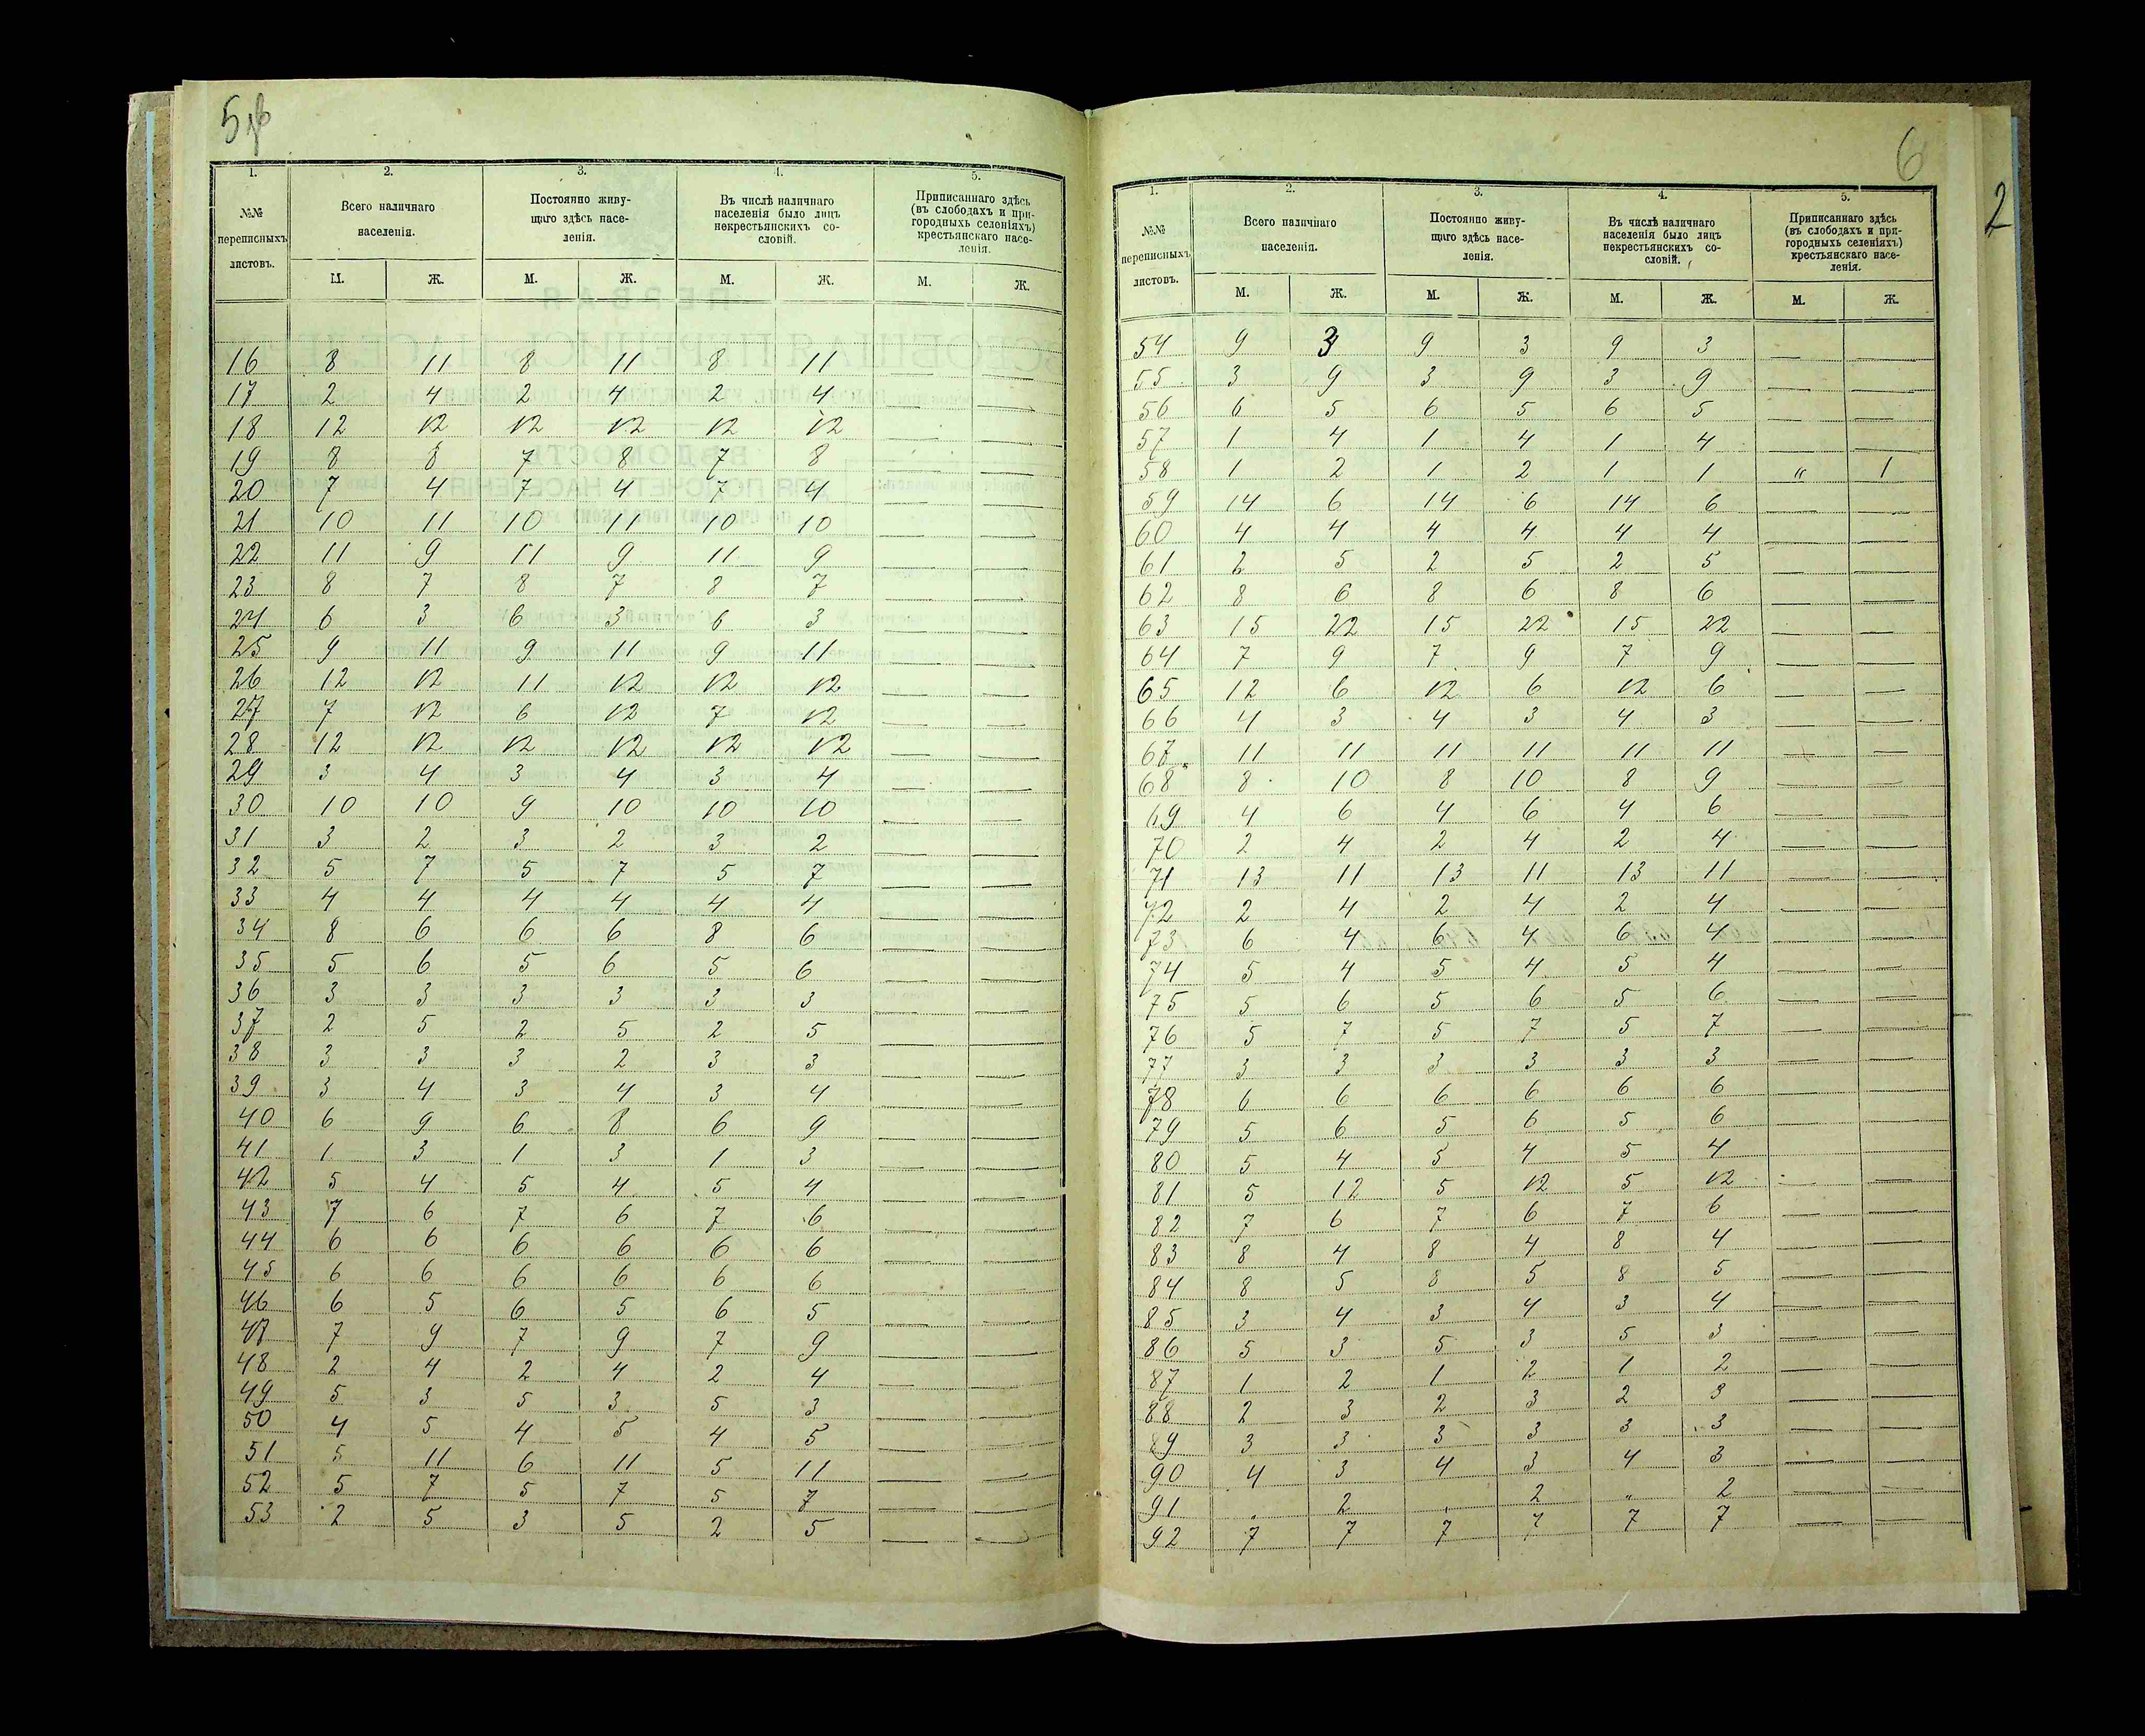 5об
1. 2. 3. 4. 5.
№№ переписныхъ листовъ. Всего наличнаго населенія. Постоянно живущаго здѣсь населенія. Въ числѣ наличнаго населенія было лицъ некрестьянскихъ сословій. Приписаннаго здѣсь (въ слободахъ и пригородныхъ селеніяхъ) крестьянскаго населенія.
М. Ж. М. Ж. М. Ж. М. Ж.
16 8 11 8 11 8 11 — —
17 2 4 2 4 2 4 — —
18 12 12 12 12 12 12 — —
19 8 8 7 8 7 8 — —
20 7 4 7 4 7 4 — —
21 10 11 10 11 10 10 — —
22 11 9 11 9 11 9 — —
23 8 7 8 7 8 7 — —
24 6 3 6 3 6 3 — —
25 9 11 9 11 9 11 — —
26 12 12 11 12 12 12 — —
27 7 12 6 12 7 12 — —
28 12 12 12 12 12 12 — —
29 3 4 3 4 3 4 — —
30 10 10 9 10 10 10 — —
31 3 2 3 2 3 2 — —
32 5 7 5 7 5 7 — —
33 4 4 4 4 4 4 — —
34 8 6 6 6 8 6 — —
35 5 6 5 6 5 6 — —
36 3 3 3 3 3 3 — —
37 2 5 2 5 2 5 — —
38 3 3 3 2 3 3 — —
39 3 4 3 4 3 4 — —
40 6 9 6 8 6 9 — —
41 1 3 1 3 1 3 — —
42 5 4 5 4 5 4 — —
43 7 6 7 6 7 6 — —
44 6 6 6 6 6 6 — —
45 6 6 6 6 6 6 — —
46 6 5 6 5 6 5 — —
47 7 9 7 9 7 9 — —
48 2 4 2 4 2 4 — —
49 5 3 5 3 5 3 — —
50 4 5 4 5 4 5 — —
51 5 11 6 11 5 11 — —
52 5 7 5 7 5 7 — —
53 2 5 3 5 2 5 — —
6
2
1. 2. 3. 4. 5.
№№ переписныхъ листовъ. Всего наличнаго населенія. Постоянно живущаго здѣсь населенія. Въ числѣ наличнаго населенія было лицъ некрестьянскихъ сословій. Приписаннаго здѣсь (въ слободахъ и пригородныхъ селеніяхъ) крестьянскаго населенія.
М. Ж. М. Ж. М. Ж. М. Ж.
54 9 3 9 3 9 3 — —
55 3 9 3 9 3 9 — —
56 6 5 6 5 6 5 — —
57 1 4 1 4 1 4 — —
58 1 2 1 2 1 1 " 1
59 14 6 14 6 14 6 — —
60 4 4 4 4 4 4 — —
61 2 5 2 5 2 5 — —
62 8 6 8 6 8 6 — —
63 15 22 15 22 15 22 — —
64 7 9 7 9 7 9 — —
65 12 6 12 6 12 6 — —
66 4 3 4 3 4 3 — —
67 11 11 11 11 11 11 — —
68 8 10 8 10 8 9 — —
69 4 6 4 6 4 6 — —
70 2 4 2 4 2 4 — —
71 13 11 13 11 13 11 — —
72 2 4 2 4 2 4 — —
73 6 4 6 4 6 4 — —
74 5 4 5 4 5 4 — —
75 5 6 5 6 5 6 — —
76 5 7 5 7 5 7 — —
77 3 3 3 3 3 3 — —
78 6 6 6 6 6 6 — —
79 5 6 5 6 5 6 — —
80 5 4 5 4 5 4 — —
81 5 12 5 12 5 12 — —
82 7 6 7 6 7 6 — —
83 8 4 8 4 8 4 — —
84 8 5 8 5 8 5 — —
85 3 4 3 4 3 4 — —
86 5 3 5 3 5 3 — —
87 1 2 1 2 1 2 — —
88 2 3 2 3 2 3 — —
89 3 3 3 3 3 3 — —
90 4 3 4 3 4 3 — —
91 " 2 " 2 " 2 — —
92 7 7 7 7 7 7 — —